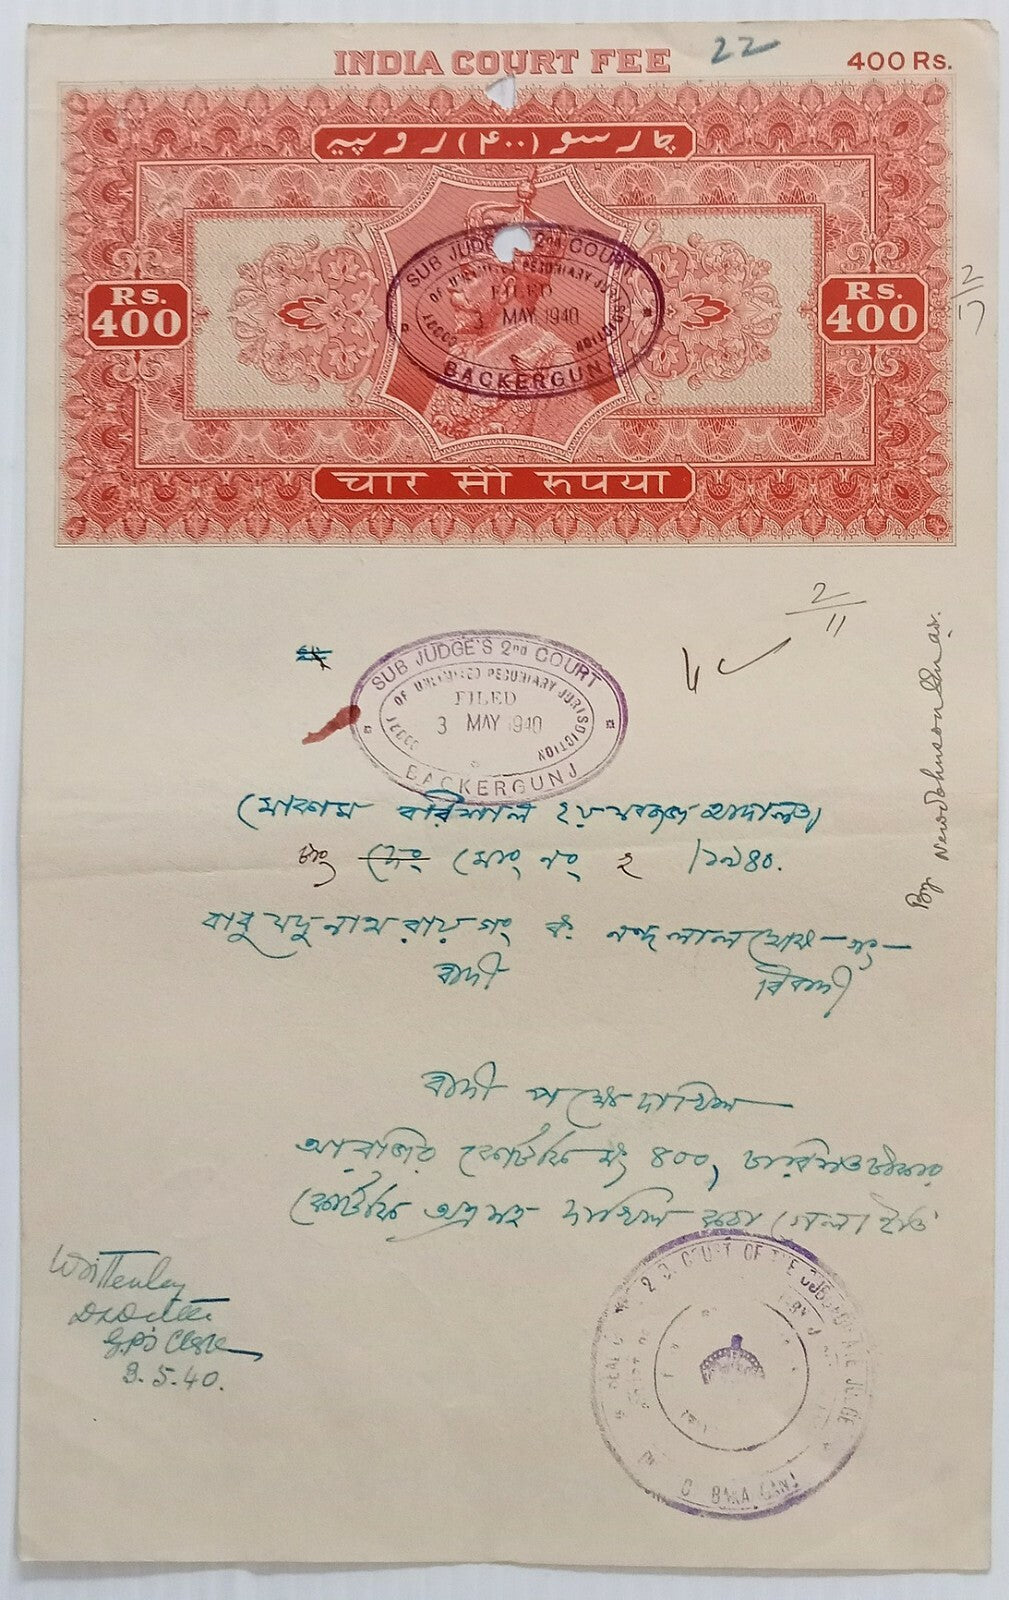 INDIA COURT FEE
22
400 Rs.
چار سو (۴۰۰) روپیہ
Rs. 400
Rs. 400
SUB JUDGE'S 2nd COURT
OF UNLIMITED PECUNIARY JURISDICTION
FILED
3 MAY 1940
BACKERGUNJ
चार सौ रुपया
2/17
2/11
SUB JUDGE'S 2nd COURT
OF UNLIMITED PECUNIARY JURISDICTION
FILED
3 MAY 1940
BACKERGUNJ
মোকাম বরিশাল ২য় সবজজ আদালত
মোং নং ২ /১৯৪০.
বাবু যদুনাথ রায় গং বঃ নন্দলাল ঘোষ গং
বাদী বিবাদী
বাদী পক্ষে দাখিল
আরজির কোর্টফি মং ৪০০৲
কোর্টফি অত্রসহ দাখিল করা গেল। ইতি
By
Written by
Clerk
3.5.40.
COURT OF THE SUBORDINATE JUDGE